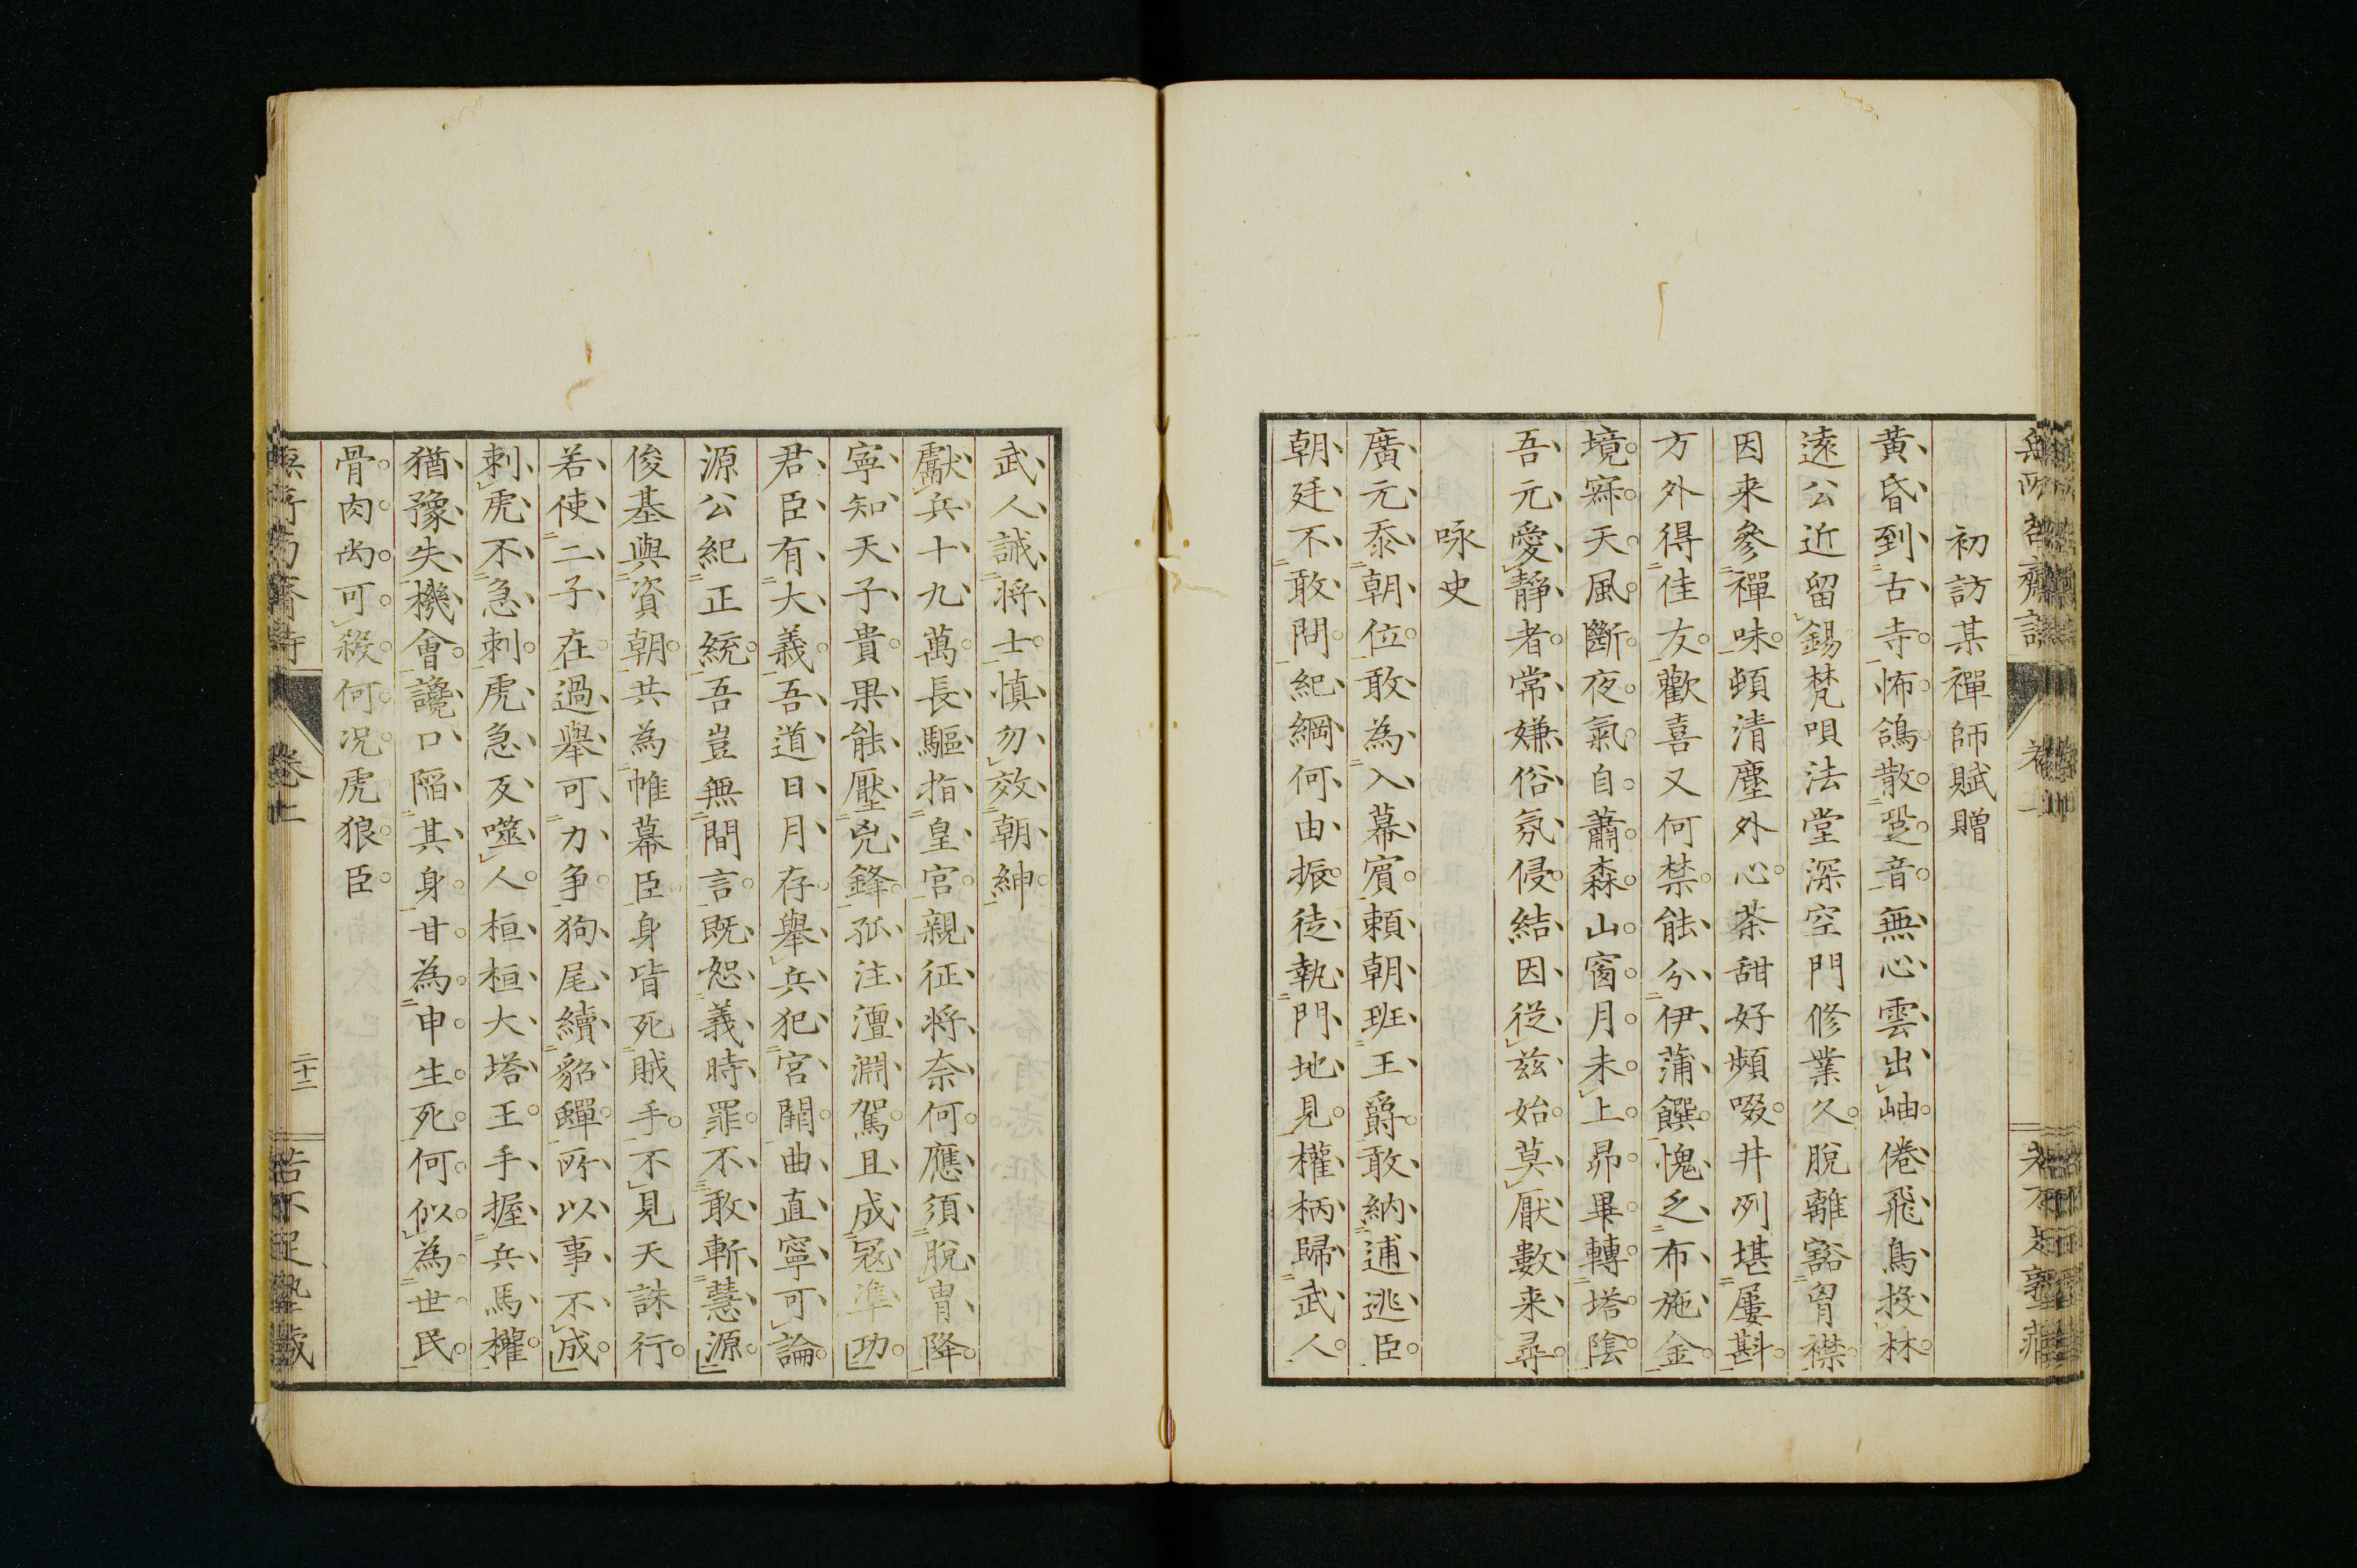 初訪某禪師賦贈
黃昏到古寺怖鴿散跫音無心雲出岫倦飛鳥投林
遠公近留錫梵唄法堂深空門修業久脫離豁胷襟
因来參禪味頓清塵外心茶甜好頻啜井冽堪屢斟
方外得佳友歡喜又何禁能分伊蒲饌愧乏布施金
境寂天風斷夜氣自蕭森山窗月未上昴畢轉塔陰
吾元愛靜者常嫌俗氛侵結因從茲始莫厭數来尋
咏史
廣元忝朝位敢為入幕賓賴朝班王爵敢納逋逃臣
朝廷不敢問紀綱何由振徒執門地見權柄歸武人
武人誡将士慎勿效朝紳
獻兵十九萬長驅指皇宮親征将奈何應須脫冑降
寧知天子貴果能壓兇鋒孤注澶淵駕且成寇準功
君臣有大義吾道日月存舉兵犯宮闕曲直寧可論
源公紀正統吾豈無間言既恕義時罪不敢斬慧源
俊基與資朝共為帷幕臣身皆死賊手不見天誅行
若使二子在過舉可力争狗尾續貂蟬所以事不成
刺虎不急刺虎急反噬人桓桓大塔王手握兵馬權
猶豫失機會讒口陷其身甘為申生死何似為世民
骨肉尚可殺何况虎狼臣
卷上
二十二